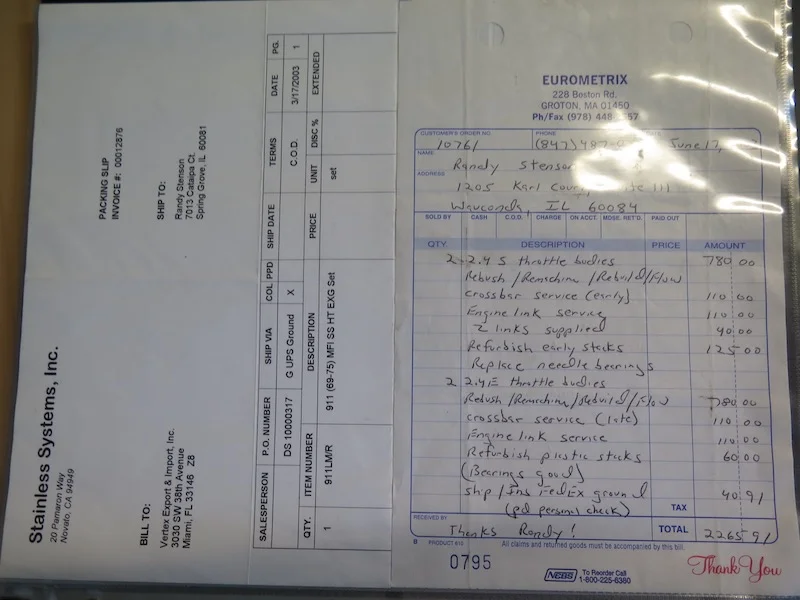 Stainless Systems, Inc.
20 Pamaron Way
Novato, CA 94949
PACKING SLIP
INVOICE #: 00012876
BILL TO:
Vertex Export & Import, Inc.
3030 SW 38th Avenue
Miami, FL 33146 Z8
SHIP TO:
Randy Stenson
7013 Catalpa Ct.
Spring Grove, IL 60081
SALESPERSON P.O. NUMBER SHIP VIA COL PPD SHIP DATE TERMS DATE PG.
DS 10000317 G UPS Ground X C.O.D. 3/17/2003 1
QTY. ITEM NUMBER DESCRIPTION PRICE UNIT DISC % EXTENDED
1 911LM/R 911 (69-75) MFI SS HT EXG Set set
EUROMETRIX
228 Boston Rd.
GROTON, MA 01450
Ph/Fax (978) 448
CUSTOMER'S ORDER NO. PHONE
10761 (847) 487 June 17,
NAME
Randy Stenson
ADDRESS
1205 Karl Court
Wauconda, IL 60084
SOLD BY CASH C.O.D. CHARGE ON ACCT. MDSE. RET'D. PAID OUT
QTY. DESCRIPTION PRICE AMOUNT
2 2.4 S throttle bodies 780 00
Rebush/Remachine/Rebuild/Flow
crossbar service (early) 110 00
Engine link service 110 00
2 links supplied 40 00
Refurbish early stacks 125 00
Replace needle bearings
2 2.4E throttle bodies
Rebush/Remachine/Rebuild/Flow 780 00
crossbar service (late) 110 00
Engine link service 110 00
Refurbish plastic stacks 60 00
(Bearings good)
ship/Ins FedEx ground 40 91
(pd personal check) TAX
RECEIVED BY
Thanks Randy! TOTAL 2265 91
B PRODUCT 610 All claims and returned goods must be accompanied by this bill.
0795
NEBS To Reorder Call
1-800-225-6380
Thank You